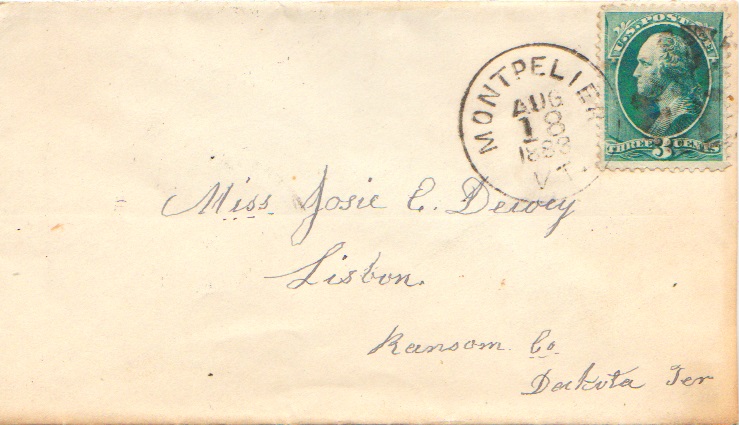 U.S. POSTAGE
THREE 3 CENTS
MONTPELIER
AUG
18
1883
VT.
Miss Josie C. Dewey
Lisbon.
Ransom Co.
Dakota Ter